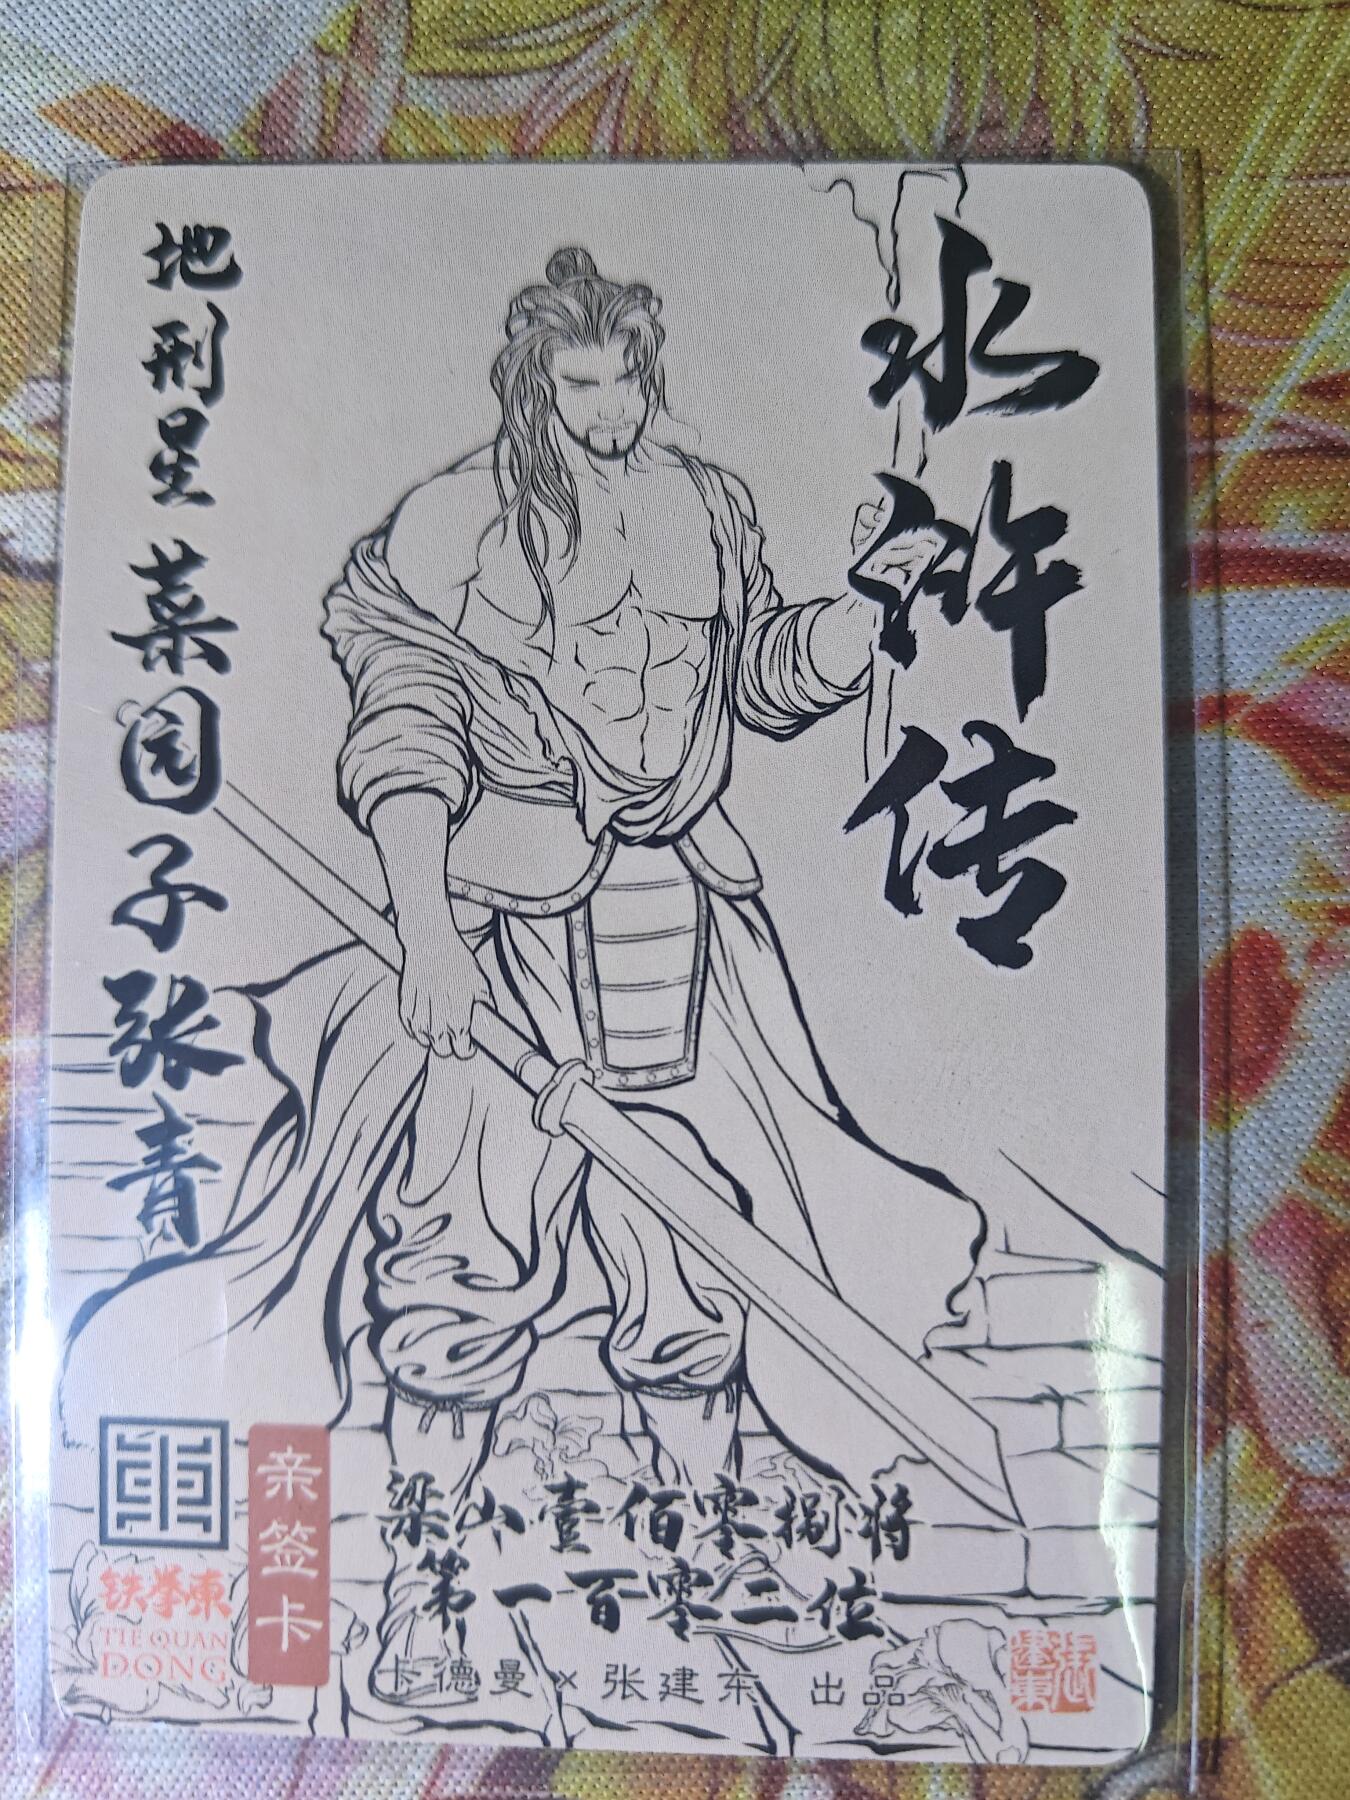 水浒传
地刑星 菜园子张青
梁山壹佰零捌将
第一百零二位
卡德曼×张建东 出品
亲签卡
铁拳東
TIE QUAN
DONG